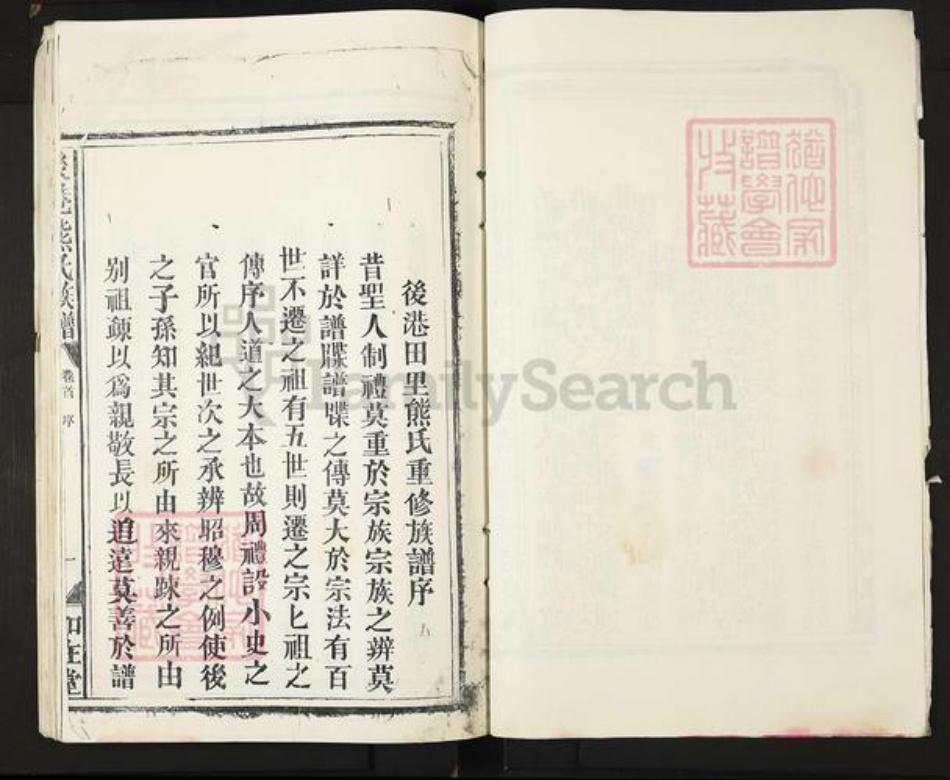 後港田里熊氏重修族譜序
昔聖人制禮莫重於宗族宗族之辨莫
詳於譜牒譜牒之傳莫大於宗法有百
世不遷之祖有五世則遷之宗匕祖之
傳序人道之大本也故周禮設小史之
官所以紀世次之承辨昭穆之例使後
之子孫知其宗之所由來親踈之所由
别祖踈以爲親敬長以追遠莫善於譜
熊氏族譜
卷首 序
一
譜學會
收藏
FamilySearch